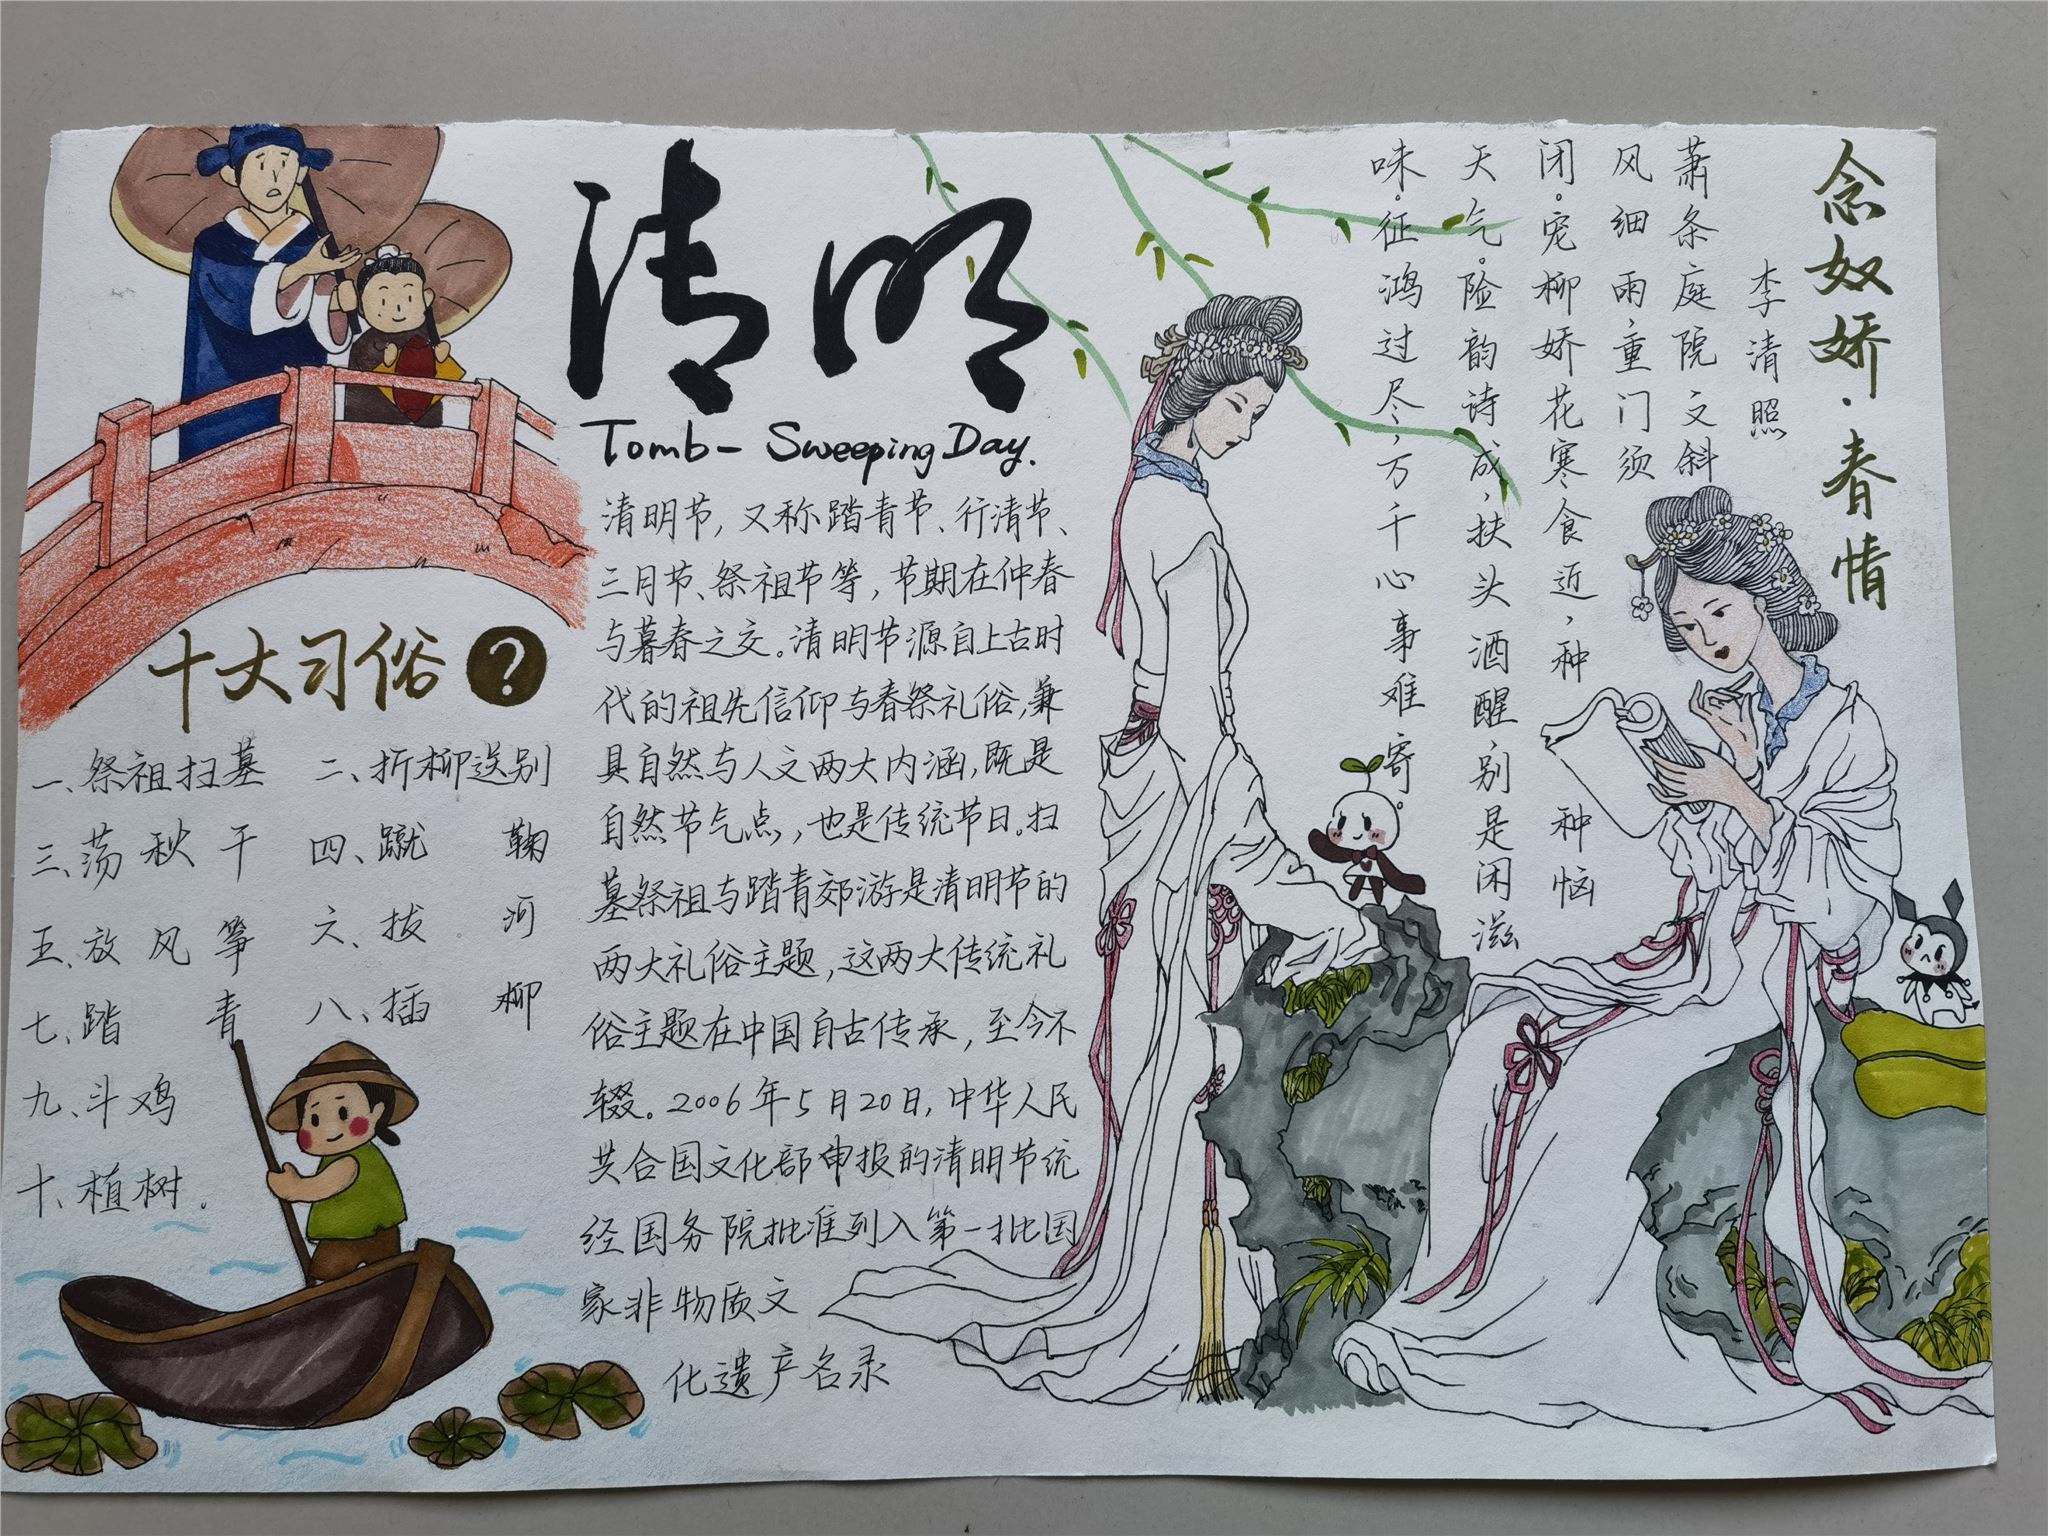 清明
Tomb-Sweeping Day.
清明节，又称踏青节、行清节、
三月节、祭祖节等，节期在仲春
与暮春之交。清明节源自上古时
代的祖先信仰与春祭礼俗，兼
具自然与人文两大内涵，既是
自然节气点，也是传统节日。扫
墓祭祖与踏青郊游是清明节的
两大礼俗主题，这两大传统礼
俗主题在中国自古传承，至今不
辍。2006年5月20日，中华人民
共合国文化部申报的清明节统
经国务院批准列入第一批国
家非物质文
化遗产名录
十大习俗?
一、祭祖扫墓 二、折柳送别
三、荡秋千 四、蹴鞠
五、放风筝 六、拔河
七、踏青 八、插柳
九、斗鸡
十、植树.
念奴娇·春情
李清照
萧条庭院又斜
风细雨，重门须
闭。宠柳娇花寒食近，种种恼
天气。险韵诗成，扶头酒醒，别是闲滋
味。征鸿过尽，万千心事难寄。